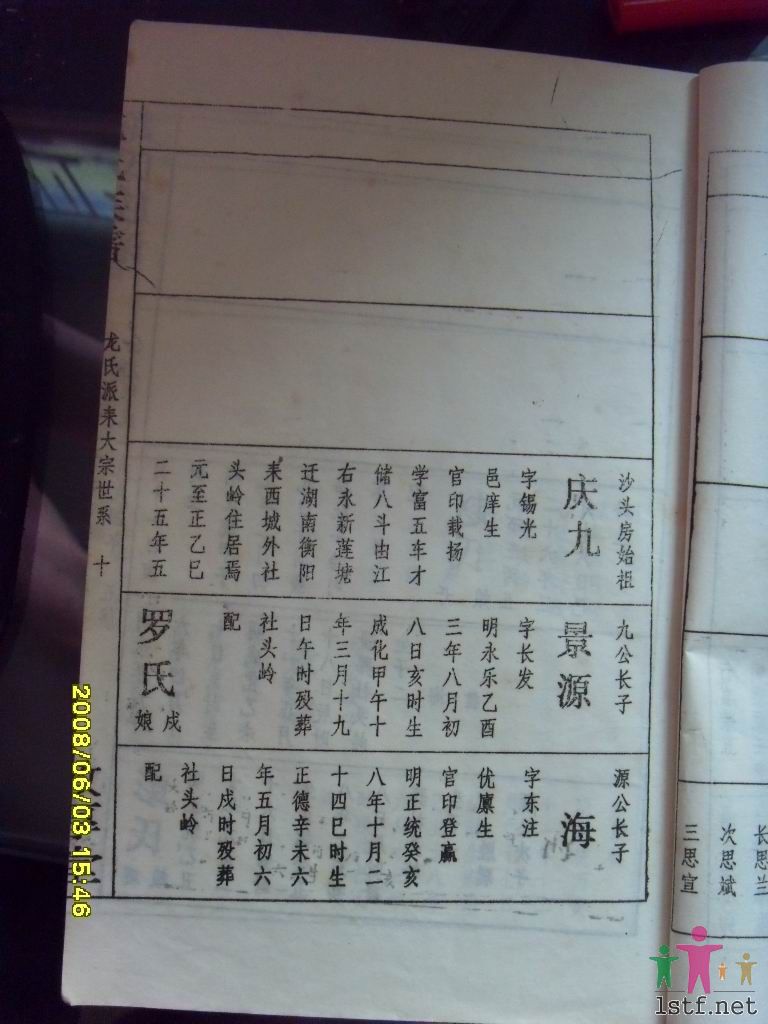 沙头房始祖
庆九
字锡光
邑庠生
官印载扬
学富五车才
储八斗由江
右永新莲塘
迁湖南衡阳
耒西城外社
头岭住居焉
元至正乙巳
二十五年五
九公长子
景源
字长发
明永乐乙酉
三年八月初
八日亥时生
成化甲午十
年三月十九
日午时殁葬
社头岭
配
罗氏
戍
娘
源公长子
海
字东注
优廪生
官印登瀛
明正统癸亥
八年十月二
十四巳时生
正德辛未六
年五月初六
日戌时殁葬
社头岭
配
龙氏派耒大宗世系
十
长思兰
次思斌
三思宣
2008/06/03 15:46
lstf.net